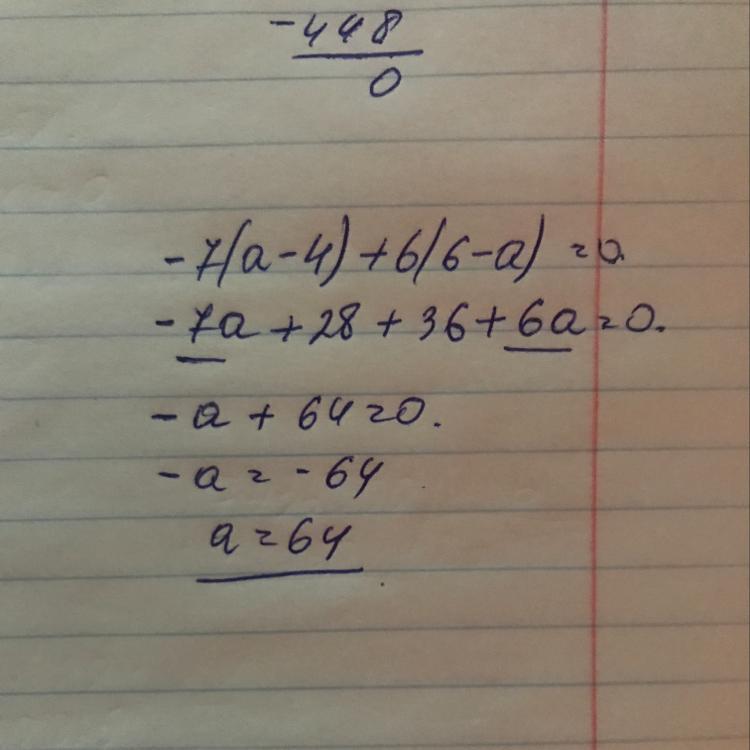 -448
0
-7(a-4)+6(6-a)=0.
-7a+28+36+6a=0.
-a+64=0.
-a=-64
a=64